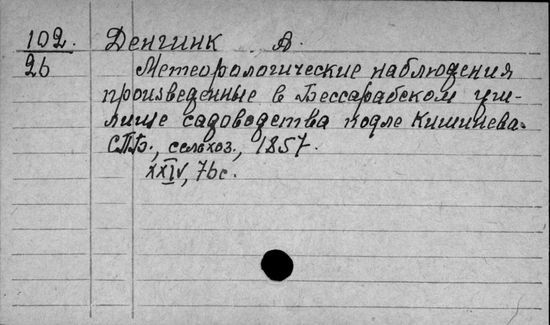 102. Денгинк А.
26 Метеорологические наблюдения
произведенные в Бессарабском учи-
лище садоводства подле Кишинева.
СПБ., сельхоз., 1857.
XXIV, 76 с.